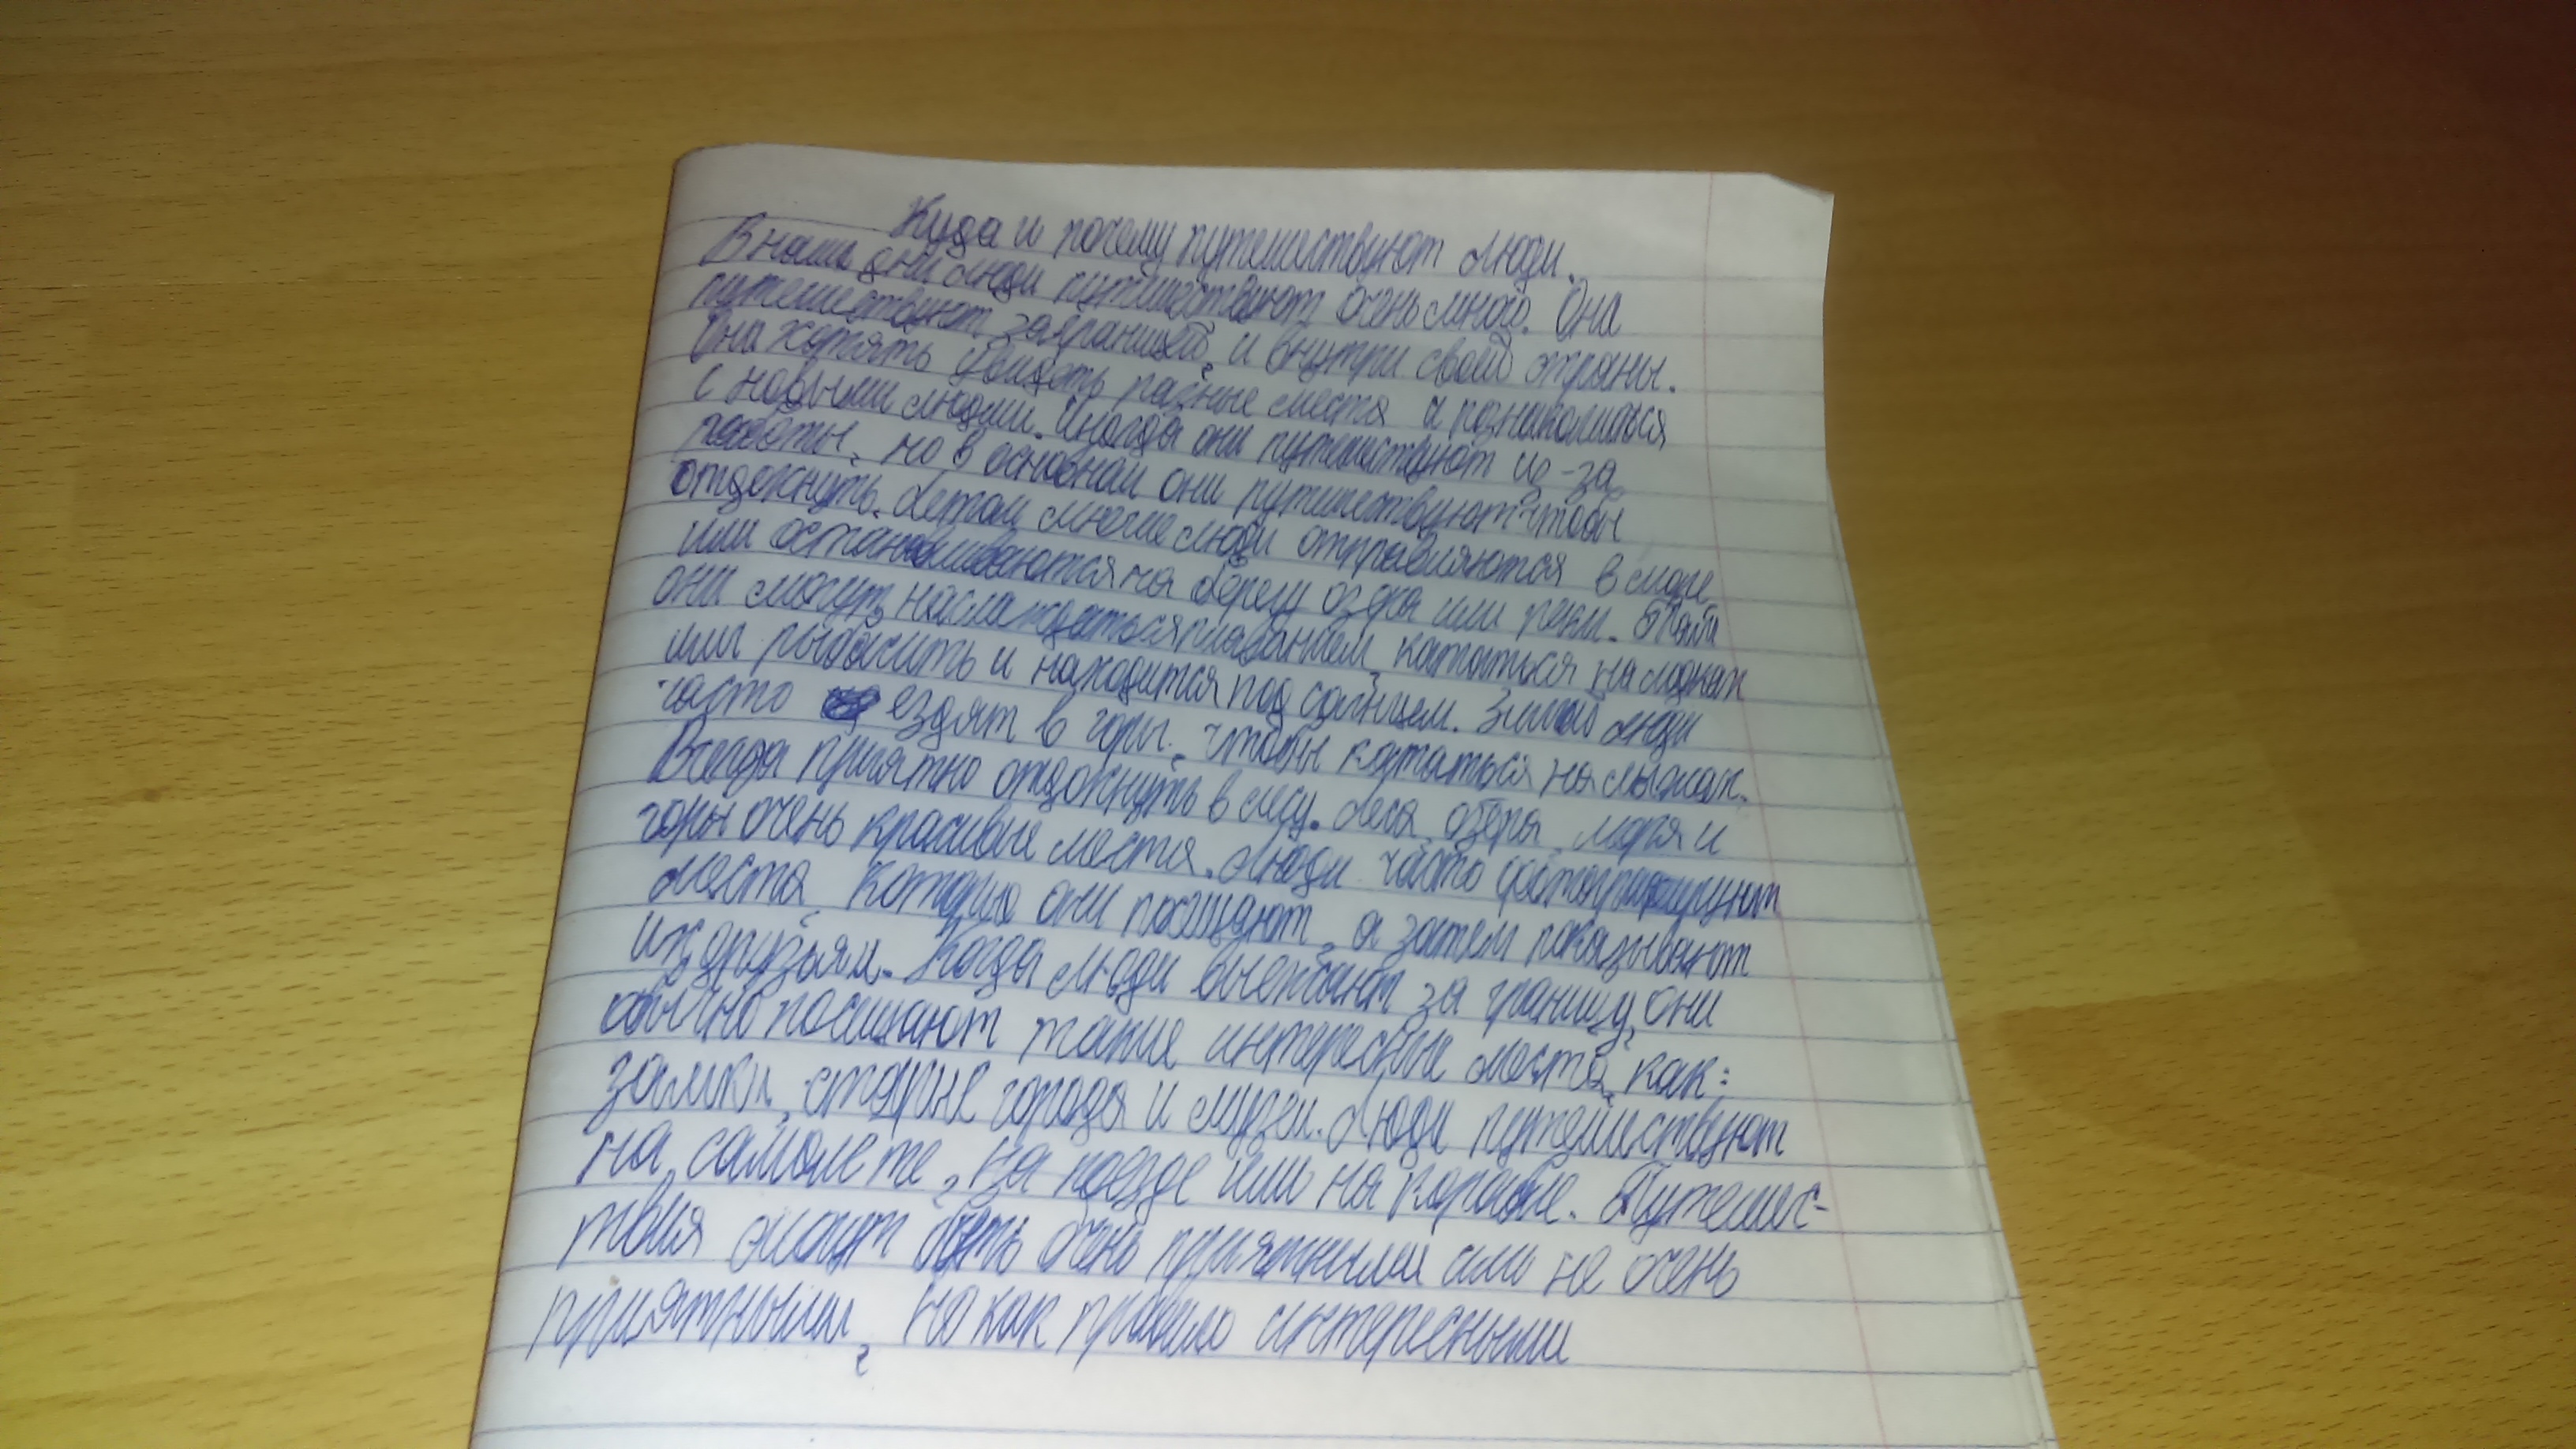 Куда и почему путешествуют люди.
В наши дни люди путешествуют очень много. Они
путешествуют заграницей, и внутри своей страны.
Они хотять увидеть разные места и познакомиться
с новыми людьми. Иногда они путешествуют из-за
работы, но в основном они путешествуют чтобы
отдохнуть. Летом многие люди отправляются в море
или останавливаются на берегу озера или реки. Там
они могут наслаждаться плаванием, кататься на лодках
или рыбачить и находится под солнцем. Зимой люди
часто ездят в горы, чтобы кататься на лыжах.
Всегда приятно отдохнуть в лесу. Леса, озёра, моря и
горы очень красивые места. Люди часто фотографируют
места, которые они посещают, а затем показывают
их друзьям. Когда люди выезжают за границу, они
обычно посещают такие интересные места, как:
замки, старые города и музеи. Люди путешествуют
на самолете, на поезде или на корабле. Путешес-
твия могут быть очень приятными или не очень
приятными, но как правило интересными